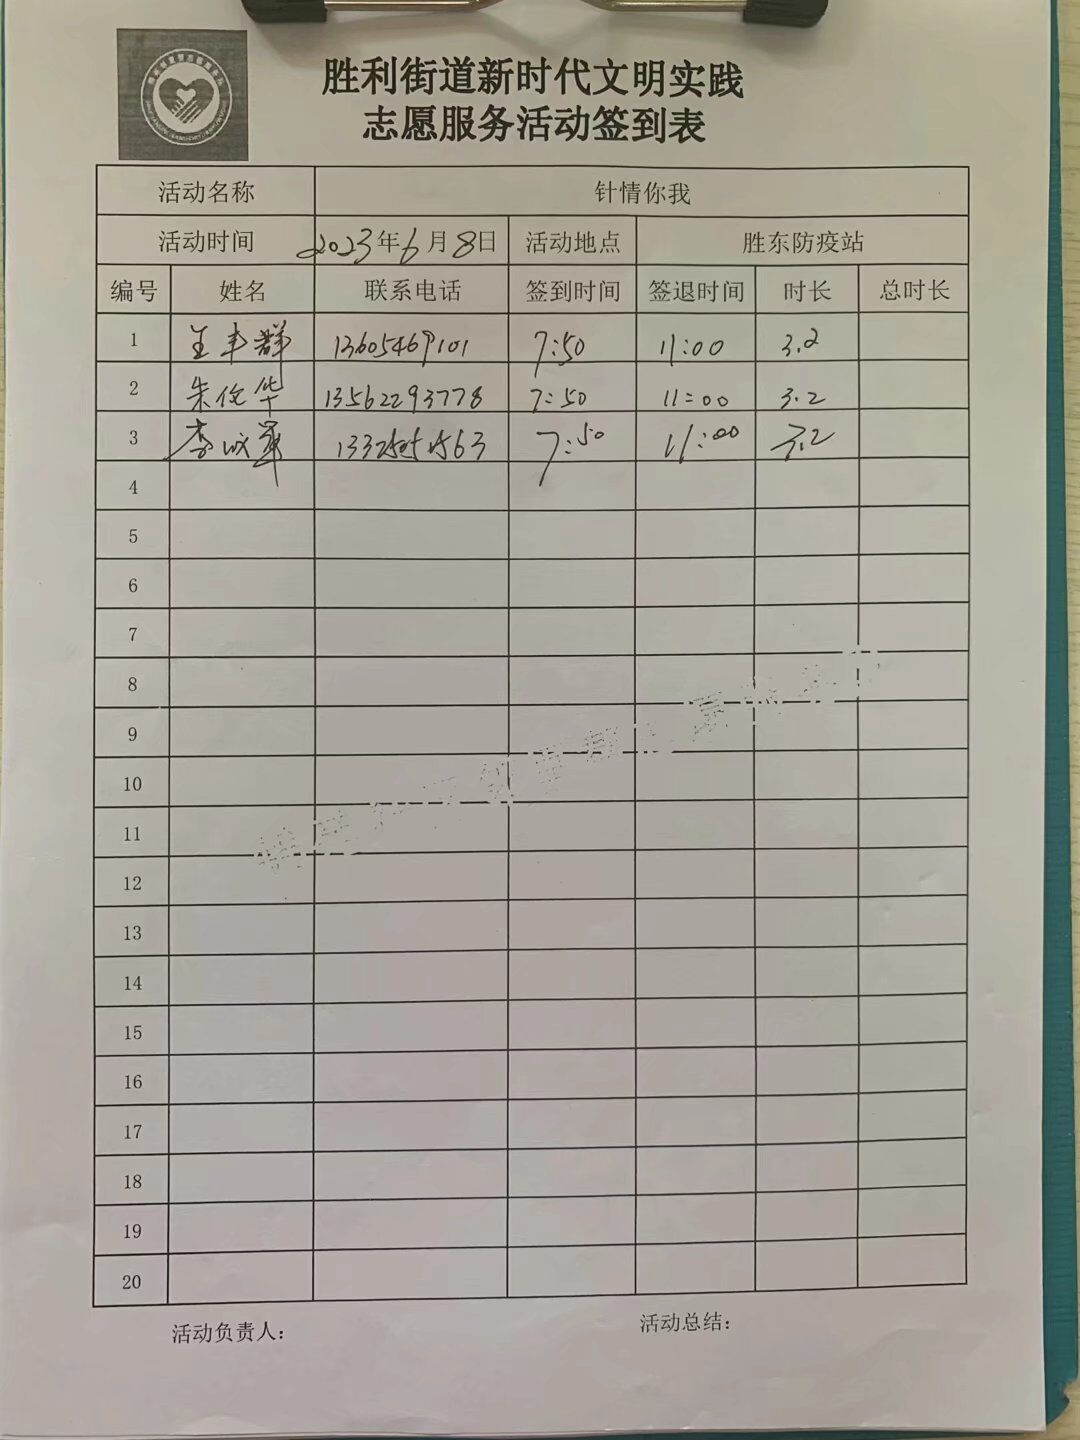 胜利街道新时代文明实践
志愿服务活动签到表
活动名称 针情你我
活动时间 2023年6月8日 活动地点 胜东防疫站
编号 姓名 联系电话 签到时间 签退时间 时长 总时长
1 王丰群 13605469101 7:50 11:00 3.2
2 朱伦华 13562293778 7:50 11:00 3.2
3 李 7:50 11:00 3.2
4
5
6
7
8
9
10
11
12
13
14
15
16
17
18
19
20
活动负责人: 活动总结: